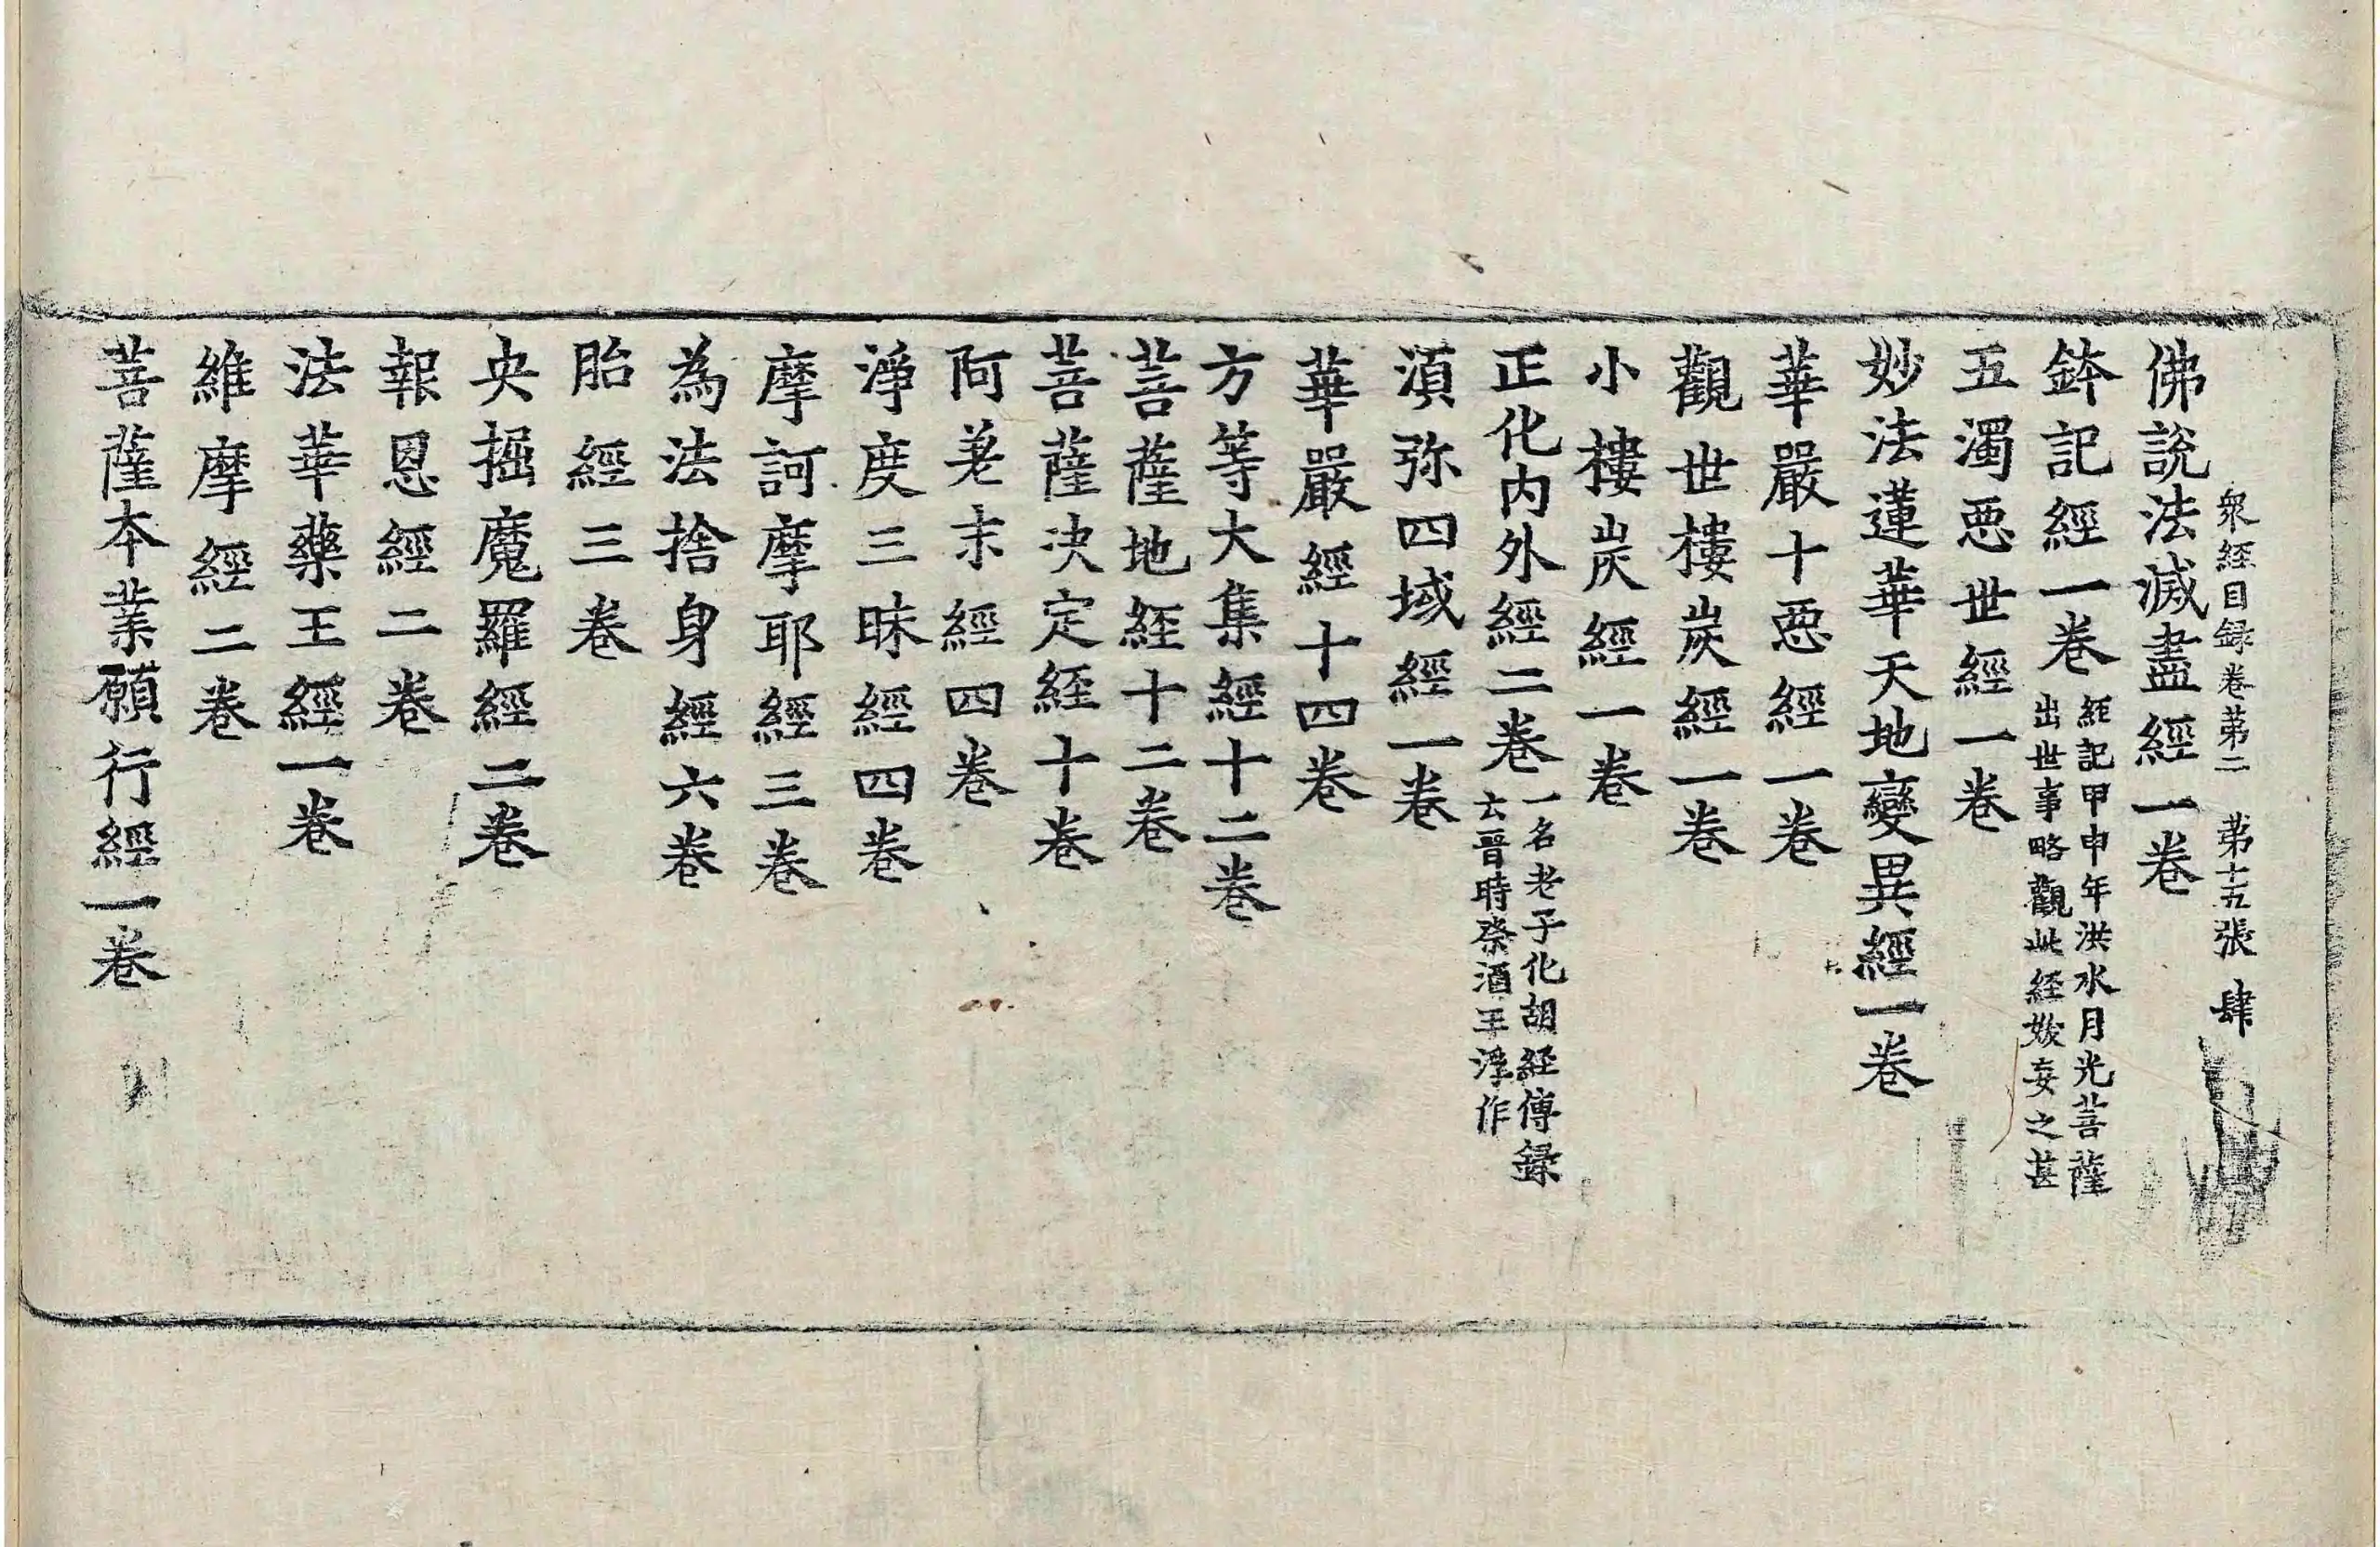 衆經目録卷第二　第十五張　肆
佛說法滅盡經一卷
鉢記經一卷 經記甲申年洪水月光菩薩出世事略觀此經妖妄之甚
五濁惡世經一卷
妙法蓮華天地變異經一卷
華嚴十惡經一卷
觀世樓炭經一卷
小樓炭經一卷
正化内外經二卷 一名老子化胡經傳録云晉時祭酒王浮作
湏弥四域經一卷
華嚴經十四卷
方等大集經十二卷
菩薩地経十二卷
菩薩决定経十卷
阿差末經四卷
淨度三昧經四卷
摩訶摩耶經三卷
為法捨身經六卷
胎經三卷
央掘魔羅經二卷
報恩經二卷
法華藥王經一卷
維摩經二卷
菩薩本業願行經一卷